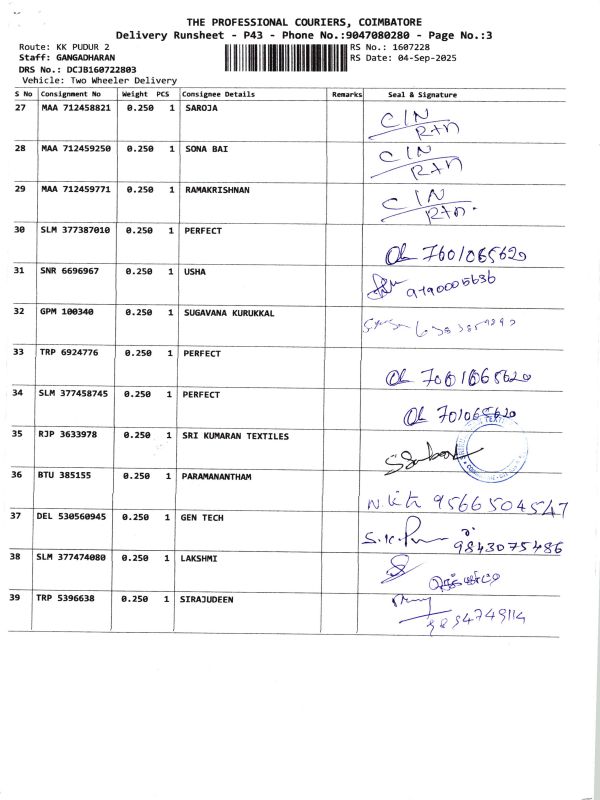 THE PROFESSIONAL COURIERS, COIMBATORE
Delivery Runsheet - P43 - Phone No.:9047080280 - Page No.:3
Route: KK PUDUR 2 RS No.: 1607228
Staff: GANGADHARAN RS Date: 04-Sep-2025
DRS No.: DCJB160722803
Vehicle: Two Wheeler Delivery
S No Consignment No Weight PCS Consignee Details Remarks Seal & Signature
27 MAA 712458821 0.250 1 SAROJA C/N
Rtn
28 MAA 712459250 0.250 1 SONA BAI C/N
Rtn
29 MAA 712459771 0.250 1 RAMAKRISHNAN C/N
Rtn.
30 SLM 377387010 0.250 1 PERFECT
7601065620
31 SNR 6696967 0.250 1 USHA
9190005636
32 GPM 100340 0.250 1 SUGAVANA KURUKKAL
33 TRP 6924776 0.250 1 PERFECT
34 SLM 377458745 0.250 1 PERFECT
35 RJP 3633978 0.250 1 SRI KUMARAN TEXTILES
36 BTU 385155 0.250 1 PARAMANANTHAM
9566504547
37 DEL 530560945 0.250 1 GEN TECH
9843075486
38 SLM 377474080 0.250 1 LAKSHMI
39 TRP 5396638 0.250 1 SIRAJUDEEN